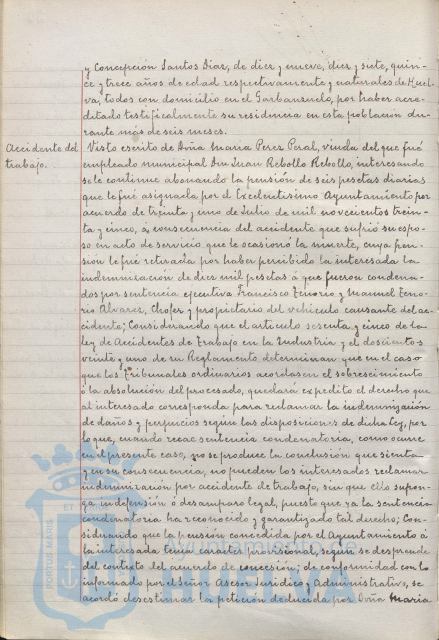 y Concepción Santos Diaz, de diez y nueve, diez y siete, quin-
ce y trece años de edad respectivamente y naturales de Huel-
va, todos con domicilio en el Garbanzuelo, por haber acre-
ditado testificalmente su residencia en esta poblacion du-
rante más de seis meses.
Accidente del trabajo.
Visto escrito de Doña Maria Perez Peral, viuda del que fué
empleado municipal Don Juan Rebollo Rebollo, interesando
se le continue abonando la pensión de seis pesetas diarias
que le fué asignada por el Excelentisimo Ayuntamiento por
acuerdo de treinta y uno de Julio de mil novecientos trein-
ta y cinco, a consecuencia del accidente que sufrió su espo-
so en acto de servicio que le ocasionó la muerte, cuya pen-
sión le fué retirada por haber percibido la interesada la
indemnización de diez mil pesetas á que fueron condena-
dos por sentencia ejecutiva Francisco Tenorio y Manuel Teno-
rio Alvarez, Chofer y propietario del vehículo causante del ac-
cidente; Considerando que el articulo sesenta y cinco de la
ley de Accidentes de Trabajo en la Industria y el doscientos
veinte y uno de su Reglamento determinan que en el caso
que los Tribunales ordinarios acordasen el sobreseimiento
ó la absolución del procesado, quedará expedito el derecho que
al interesado corresponda para reclamar la indemnización
de daños y perjuicios segun las disposiciones de dicha Ley, por
lo que, cuando recae sentencia condenatoria, como ocurre
en el presente caso, no se produce la conclusión que sienta
y en su consecuencia, no pueden los interesados reclamar
indemnización por accidente de trabajo, sin que ello supon-
ga indefensión ó desamparo legal, puesto que ya la sentencia
condenatoria ha reconocido y garantizado tal derecho; Con-
siderando que la pensión concedida por el Ayuntamiento á
la interesada tenia caracter provisional, según se desprende
del contexto del acuerdo de concesión; de conformidad con lo
informado por el Señor Asesor Juridico y Administrativo, se
acordó desestimar la petición deducida por Doña Maria
PORTUS MARIS ET
HUELVA